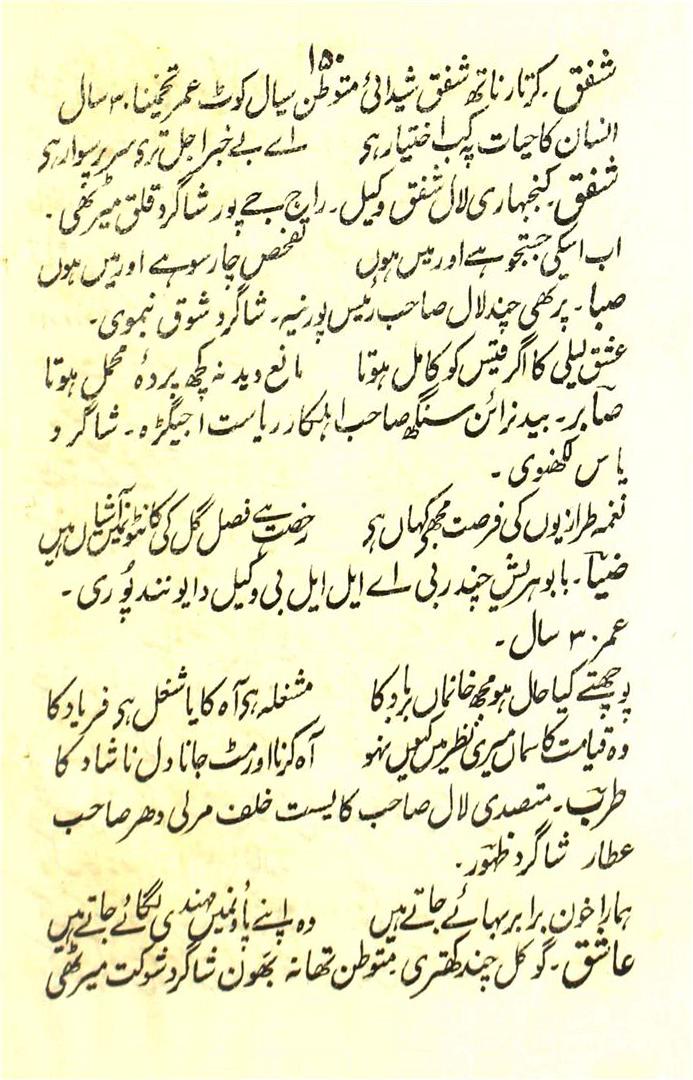 ۱۵۰
شفق۔ کرتار ناتھ شفق شیدائی متوطن سیال کوٹ عمر تخمیناً ۳۰ سال
انسان کا حیات پہ کب اختیار ہی اے بے خبر اجل تری سر پر سوار ہی
شفق۔ کنجبہاری لال شفق وکیل۔ راج جے پور شاگرد قلق میرٹھی۔
اب اسکی جستجو ہے اور میں ہوں تفحص چار سو ہے اور میں ہوں
صبا۔ پرتھی چند لال صاحب رئیس پورنیہ۔ شاگرد شوق نیموی۔
عشق لیلی کا اگر قیس کو کامل ہوتا مانع دید نہ کچھ پردۂ محمل ہوتا
صابر۔ بید نرائن سنگھ صاحب اہلکار ریاست اجیگڑہ۔ شاگرد
یاس لکھنوی۔
نغمہ طرازیوں کی فرصت مجھی کہاں ہی رخصت ہے فصل گل کی کانٹونمیں آشیاں ہیں
ضیا۔ بابو ہریش چندر بی اے ایل ایل بی وکیل دایونند پوری۔
عمر ۳۰ سال۔
پوچھتے کیا حال ہو مجھ خانماں برباد کا مشغلہ ہی آہ کا یا شغل ہی فریاد کا
وہ قیامت کا سماں میری نظر میں کیوں نہو آہ کرنا اور مٹ جانا دل ناشاد کا
طرب۔ متصدی لال صاحب کایست خلف مرلی دھر صاحب
عطار شاگرد ظہور۔
ہمارا خون برابر بہائے جاتے ہیں وہ اپنے پاؤنمیں مہندی لگائے جاتے ہیں
عاشق۔ گوکل چند کھتری متوطن تھانہ بھون شاگرد شوکت میرٹھی